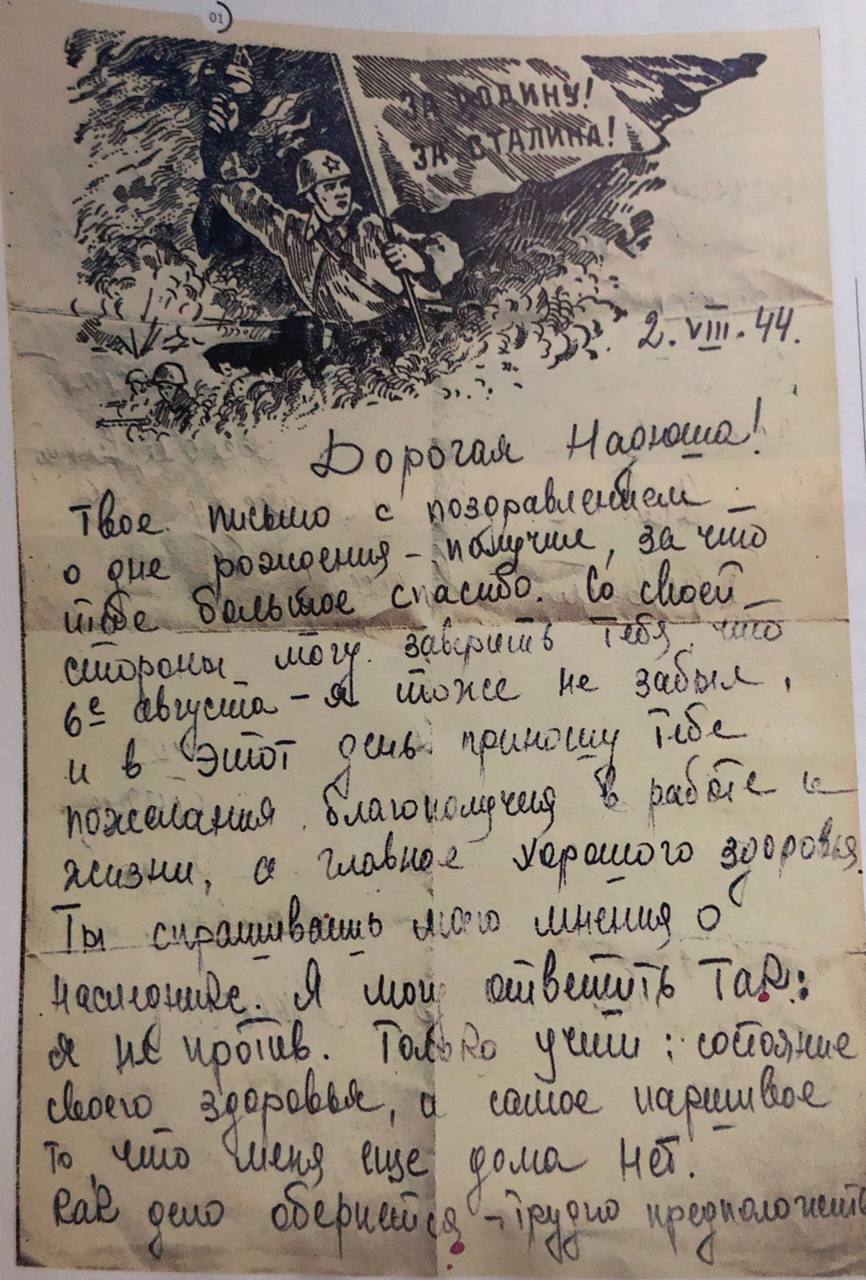 01
ЗА РОДИНУ!
ЗА СТАЛИНА!
2. VIII. 44.
Дорогая Надюша!
Твое письмо с поздравлением
о дне рождения – получил, за что
тебе большое спасибо. Со своей
стороны могу заверить тебя, что
6е августа – я тоже не забыл,
и в этот день приношу тебе
пожелания благополучия в работе и
жизни, а главное хорошего здоровья.
Ты спрашиваешь моего мнения о
Я могу ответить так:
я не против. Только учти: состояние
своего здоровья, а самое паршивое
то, что меня еще дома нет.
Как дело обернется – трудно предположить